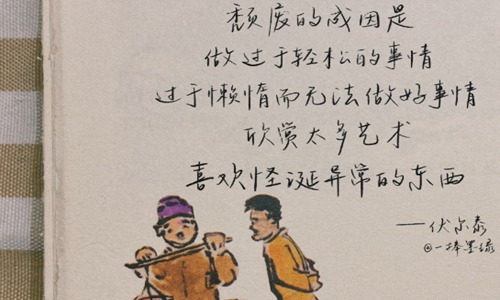 颓废的成因是
做过于轻松的事情
过于懒惰而无法做好事情
欣赏太多艺术
喜欢怪诞异常的东西
——伏尔泰
@一捧墨绿